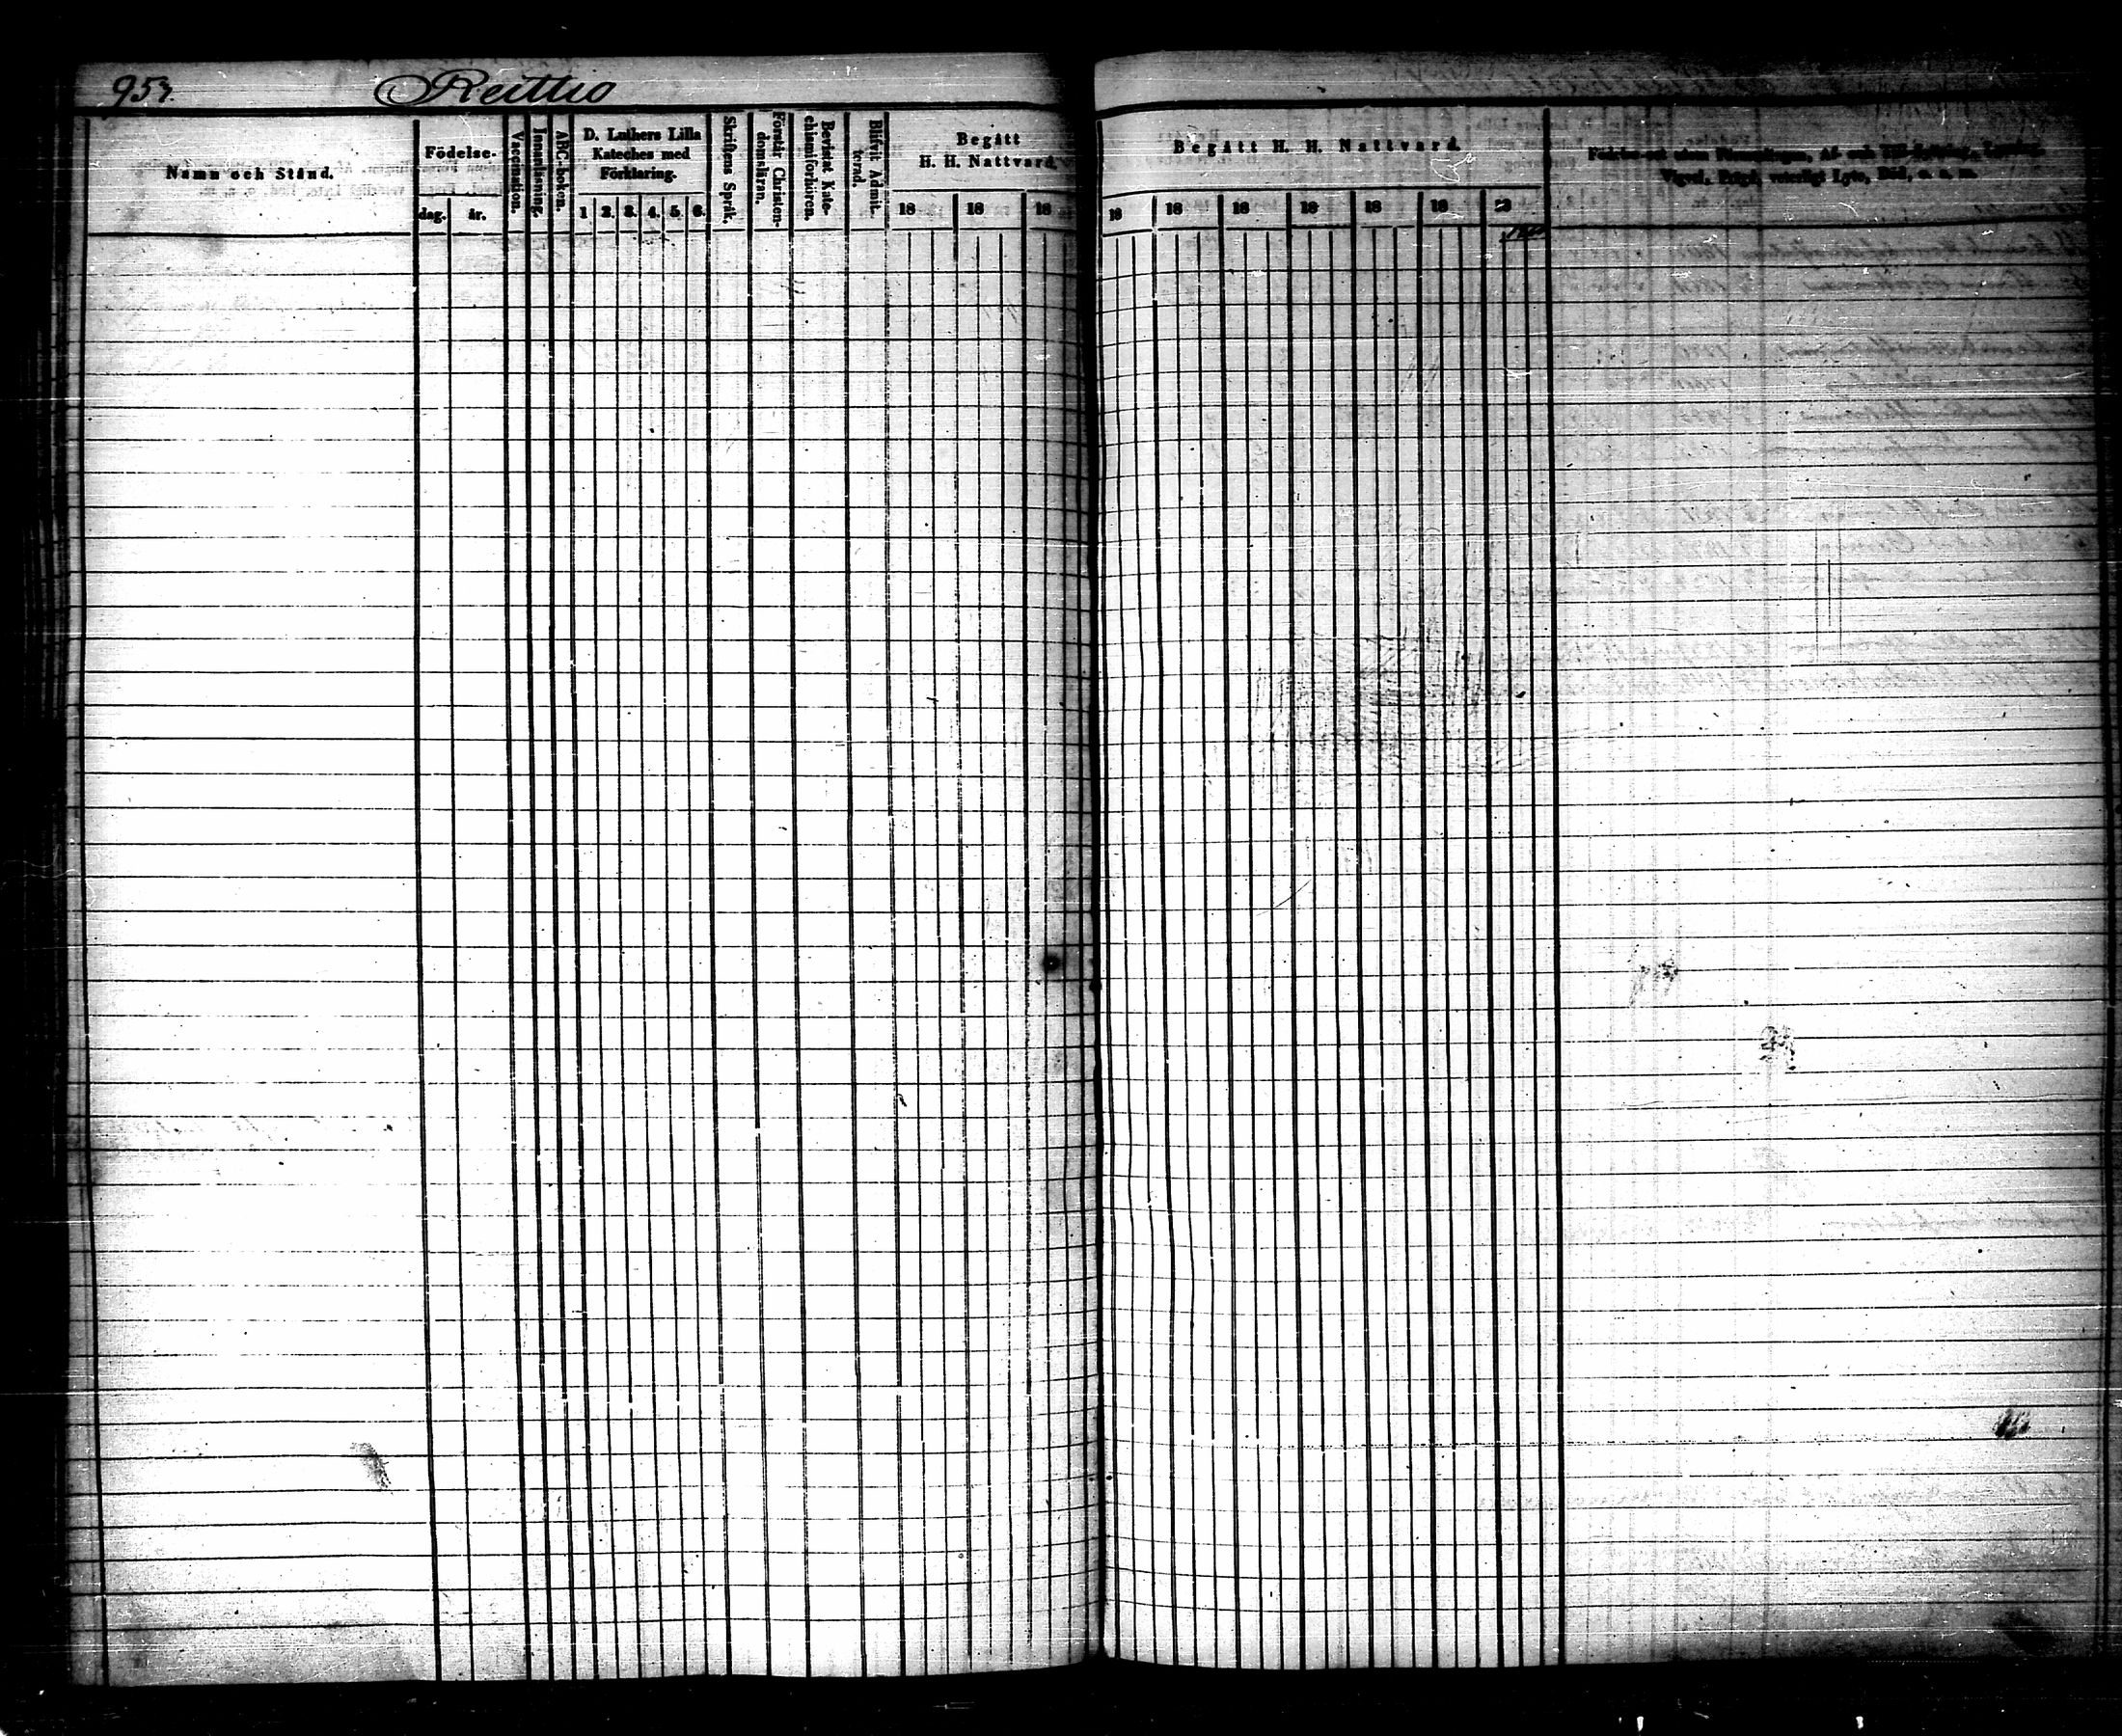 953.
Reittio
Namn och Stånd.
Födelse-
dag. år.
Vaccination.
Innanläsning.
ABC-boken.
D. Luthers Lilla
Kateches med
Förklaring.
1. 2. 3. 4. 5. 6.
Skriftens Språk.
Förstår Christen-
domsläran.
Bevistat Kate-
chismiförhören.
Blifvit Admit-
terad.
Begått
H. H. Nattvard.
18 18 18
Begått H. H. Nattvard.
18 18 18 18 18 18 18
Vigsel, Frägd, veterligt Lyte, Död, o. s. m.